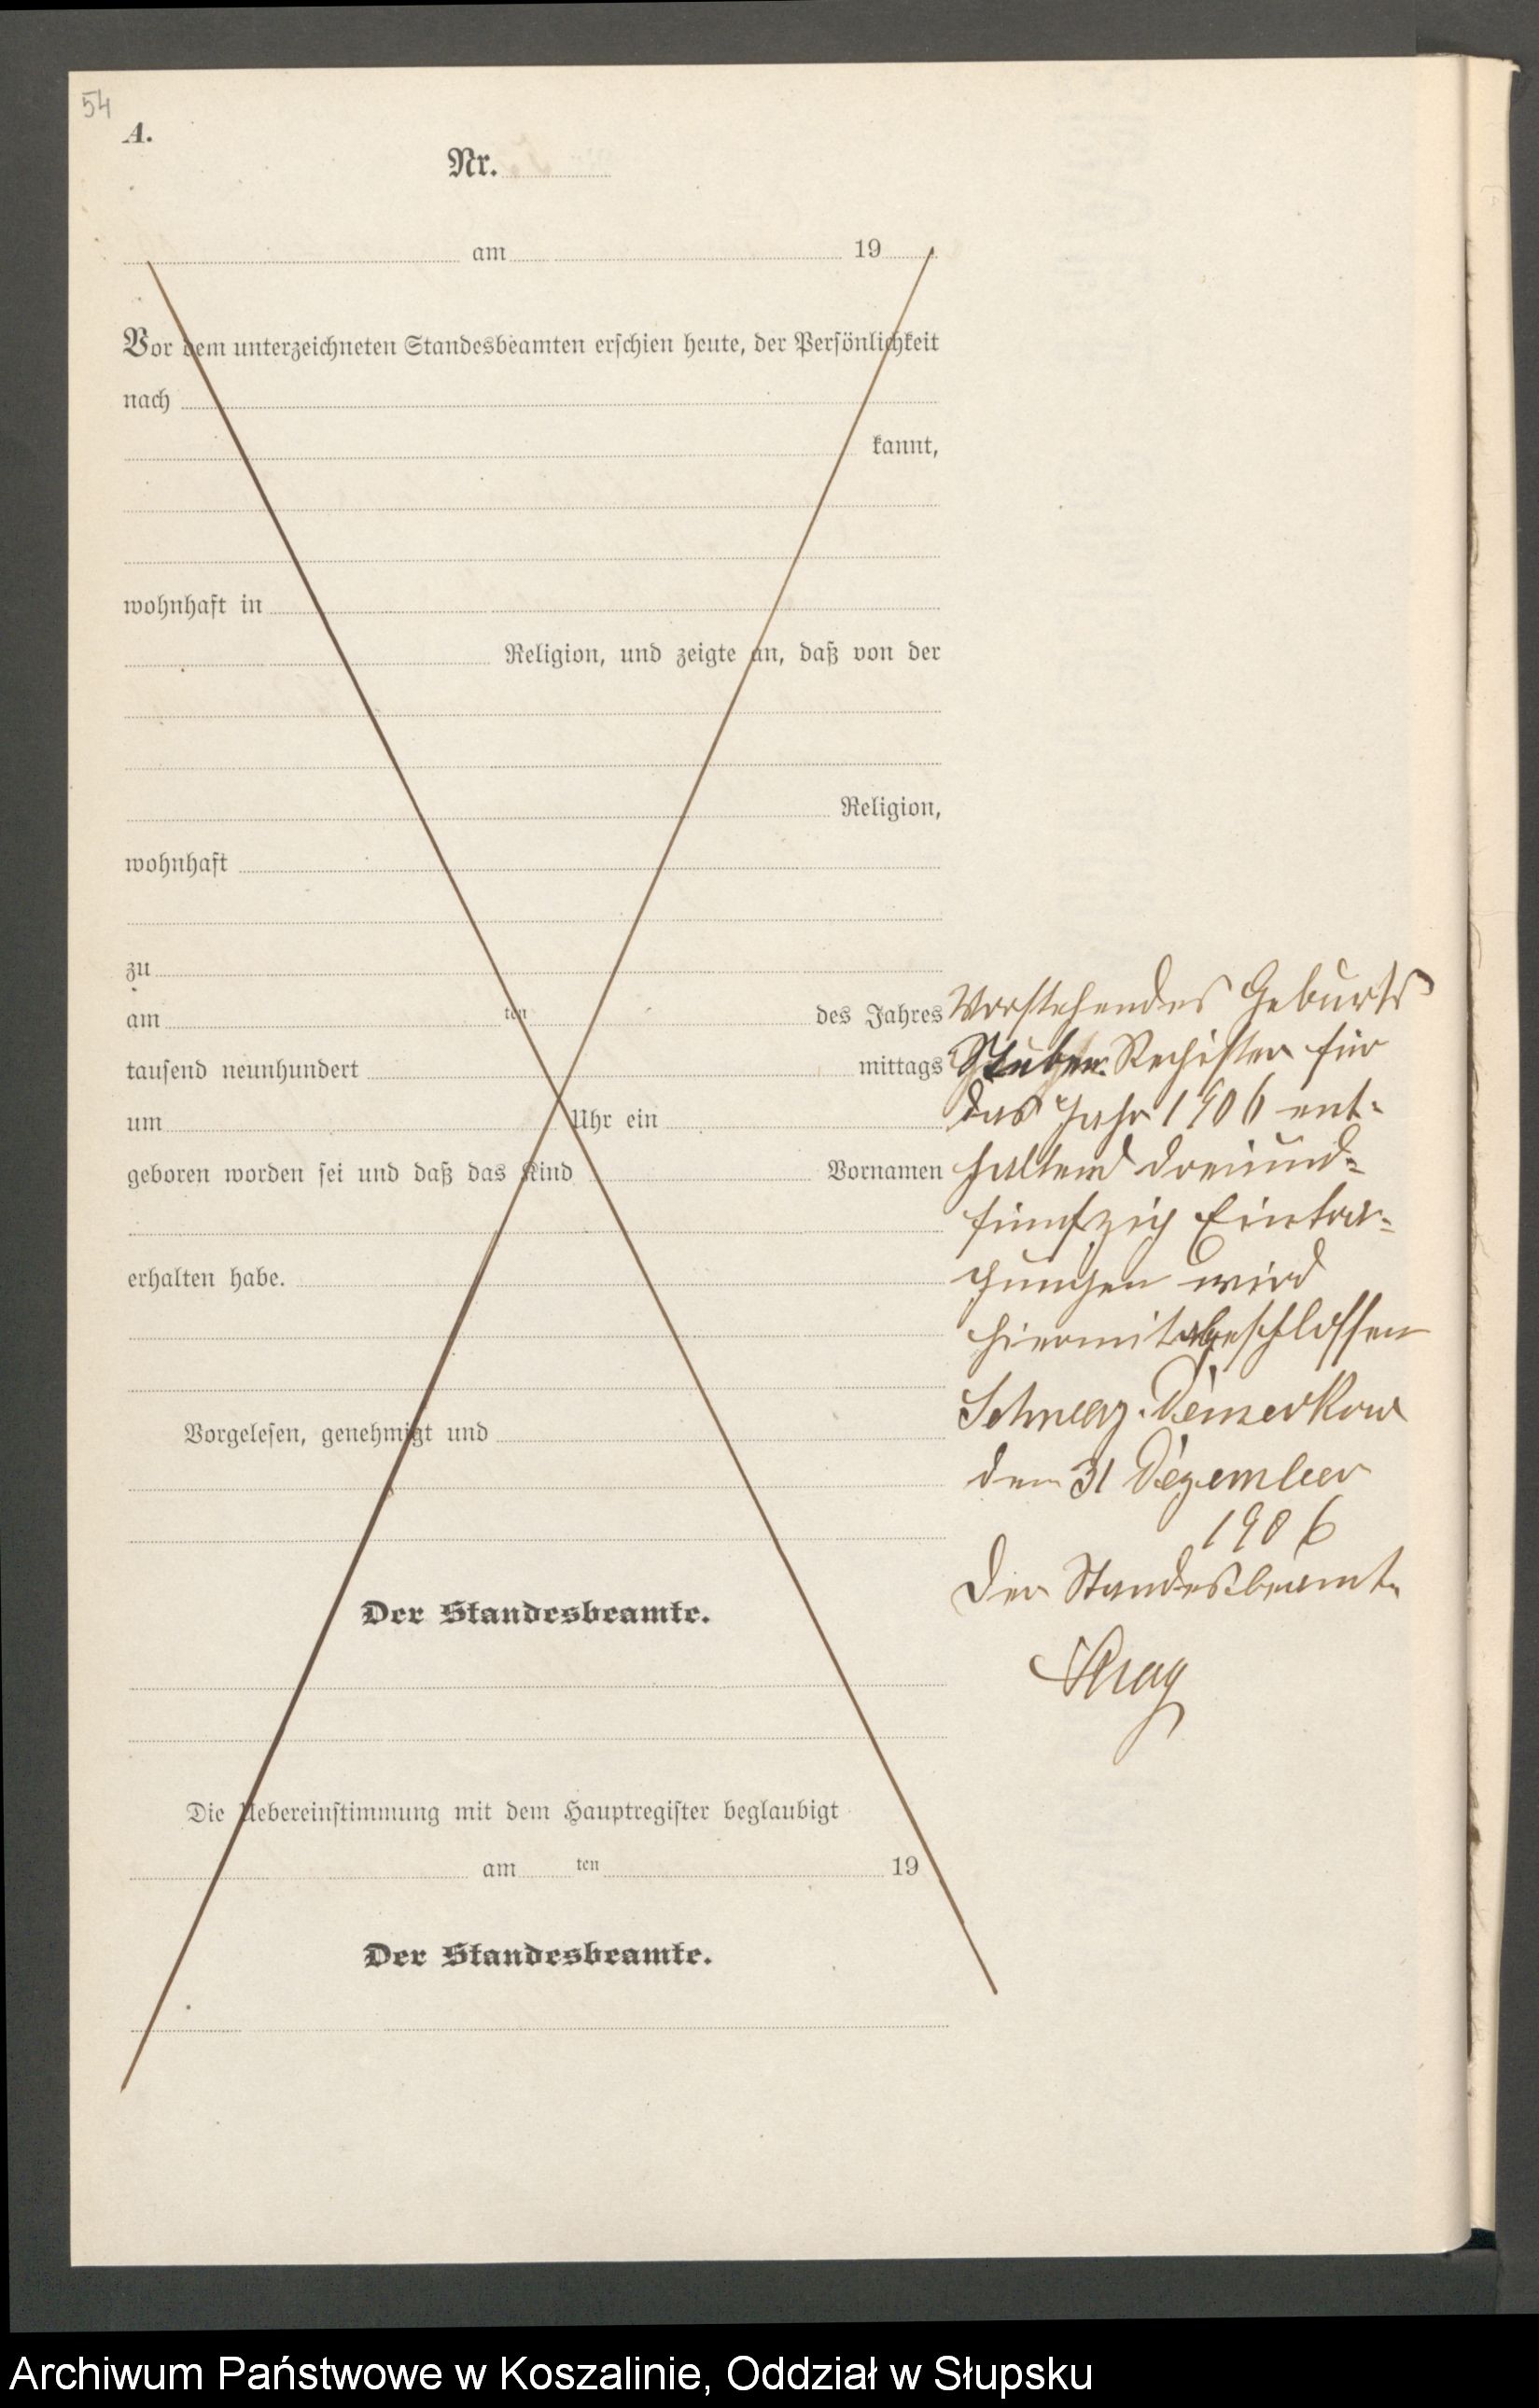 54
A.
Nr.
am 19
Vor dem unterzeichneten Standesbeamten erschien heute, der Persönlichkeit
nach
kannt,
wohnhaft in
Religion, und zeigte an, daß von der
Religion,
wohnhaft
zu
am ten des Jahres
tausend neunhundert mittags
um Uhr ein
geboren worden sei und daß das Kind Vornamen
erhalten habe.
Vorgelesen, genehmigt und
Der Standesbeamte.
Die Uebereinstimmung mit dem Hauptregister beglaubigt
am ten 19
Der Standesbeamte.
Vorstehendes Geburts
Neben Register für
das Jahr 1906 ent-
haltend dreiund-
fünfzig Eintra-
gungen wird
hiermit abgeschlossen
Schwarz-Damerkow
den 31 Dezember
1906
Der Standesbeamte
Archiwum Państwowe w Koszalinie, Oddział w Słupsku